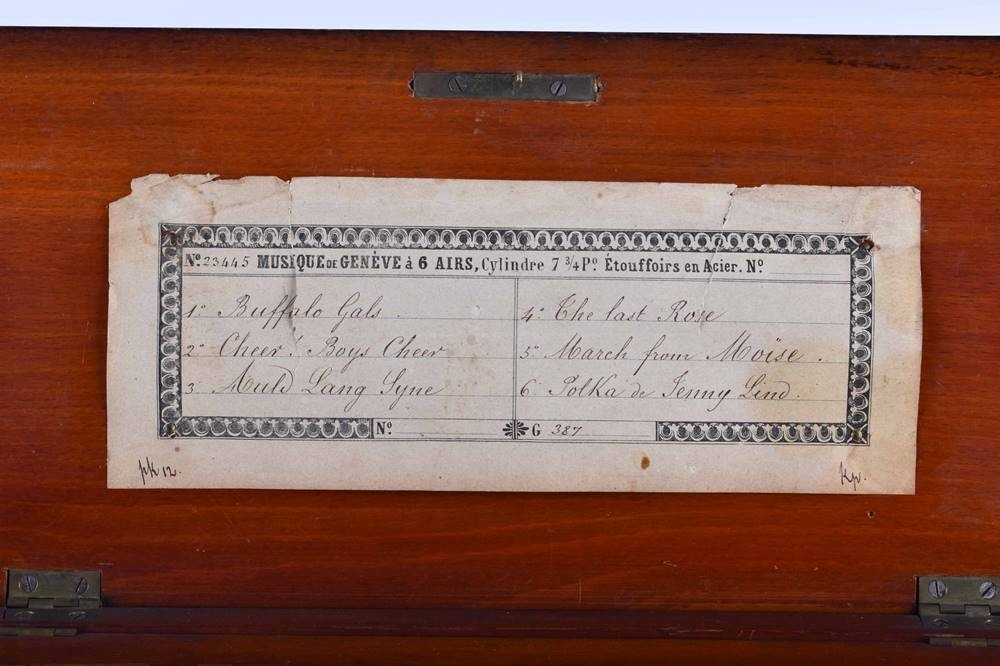 Nº 23445 MUSIQUE DE GENÈVE à 6 AIRS, Cylindre 7 3/4 Pº. Étouffoirs en Acier. Nº
1º Buffalo Gals.
2º Cheer! Boys Cheer
3 Auld Lang Syne
4º The last Rose
5º March from Moïse.
6 Polka de Jenny Lind.
Nº G 387
pk 12. Kp.